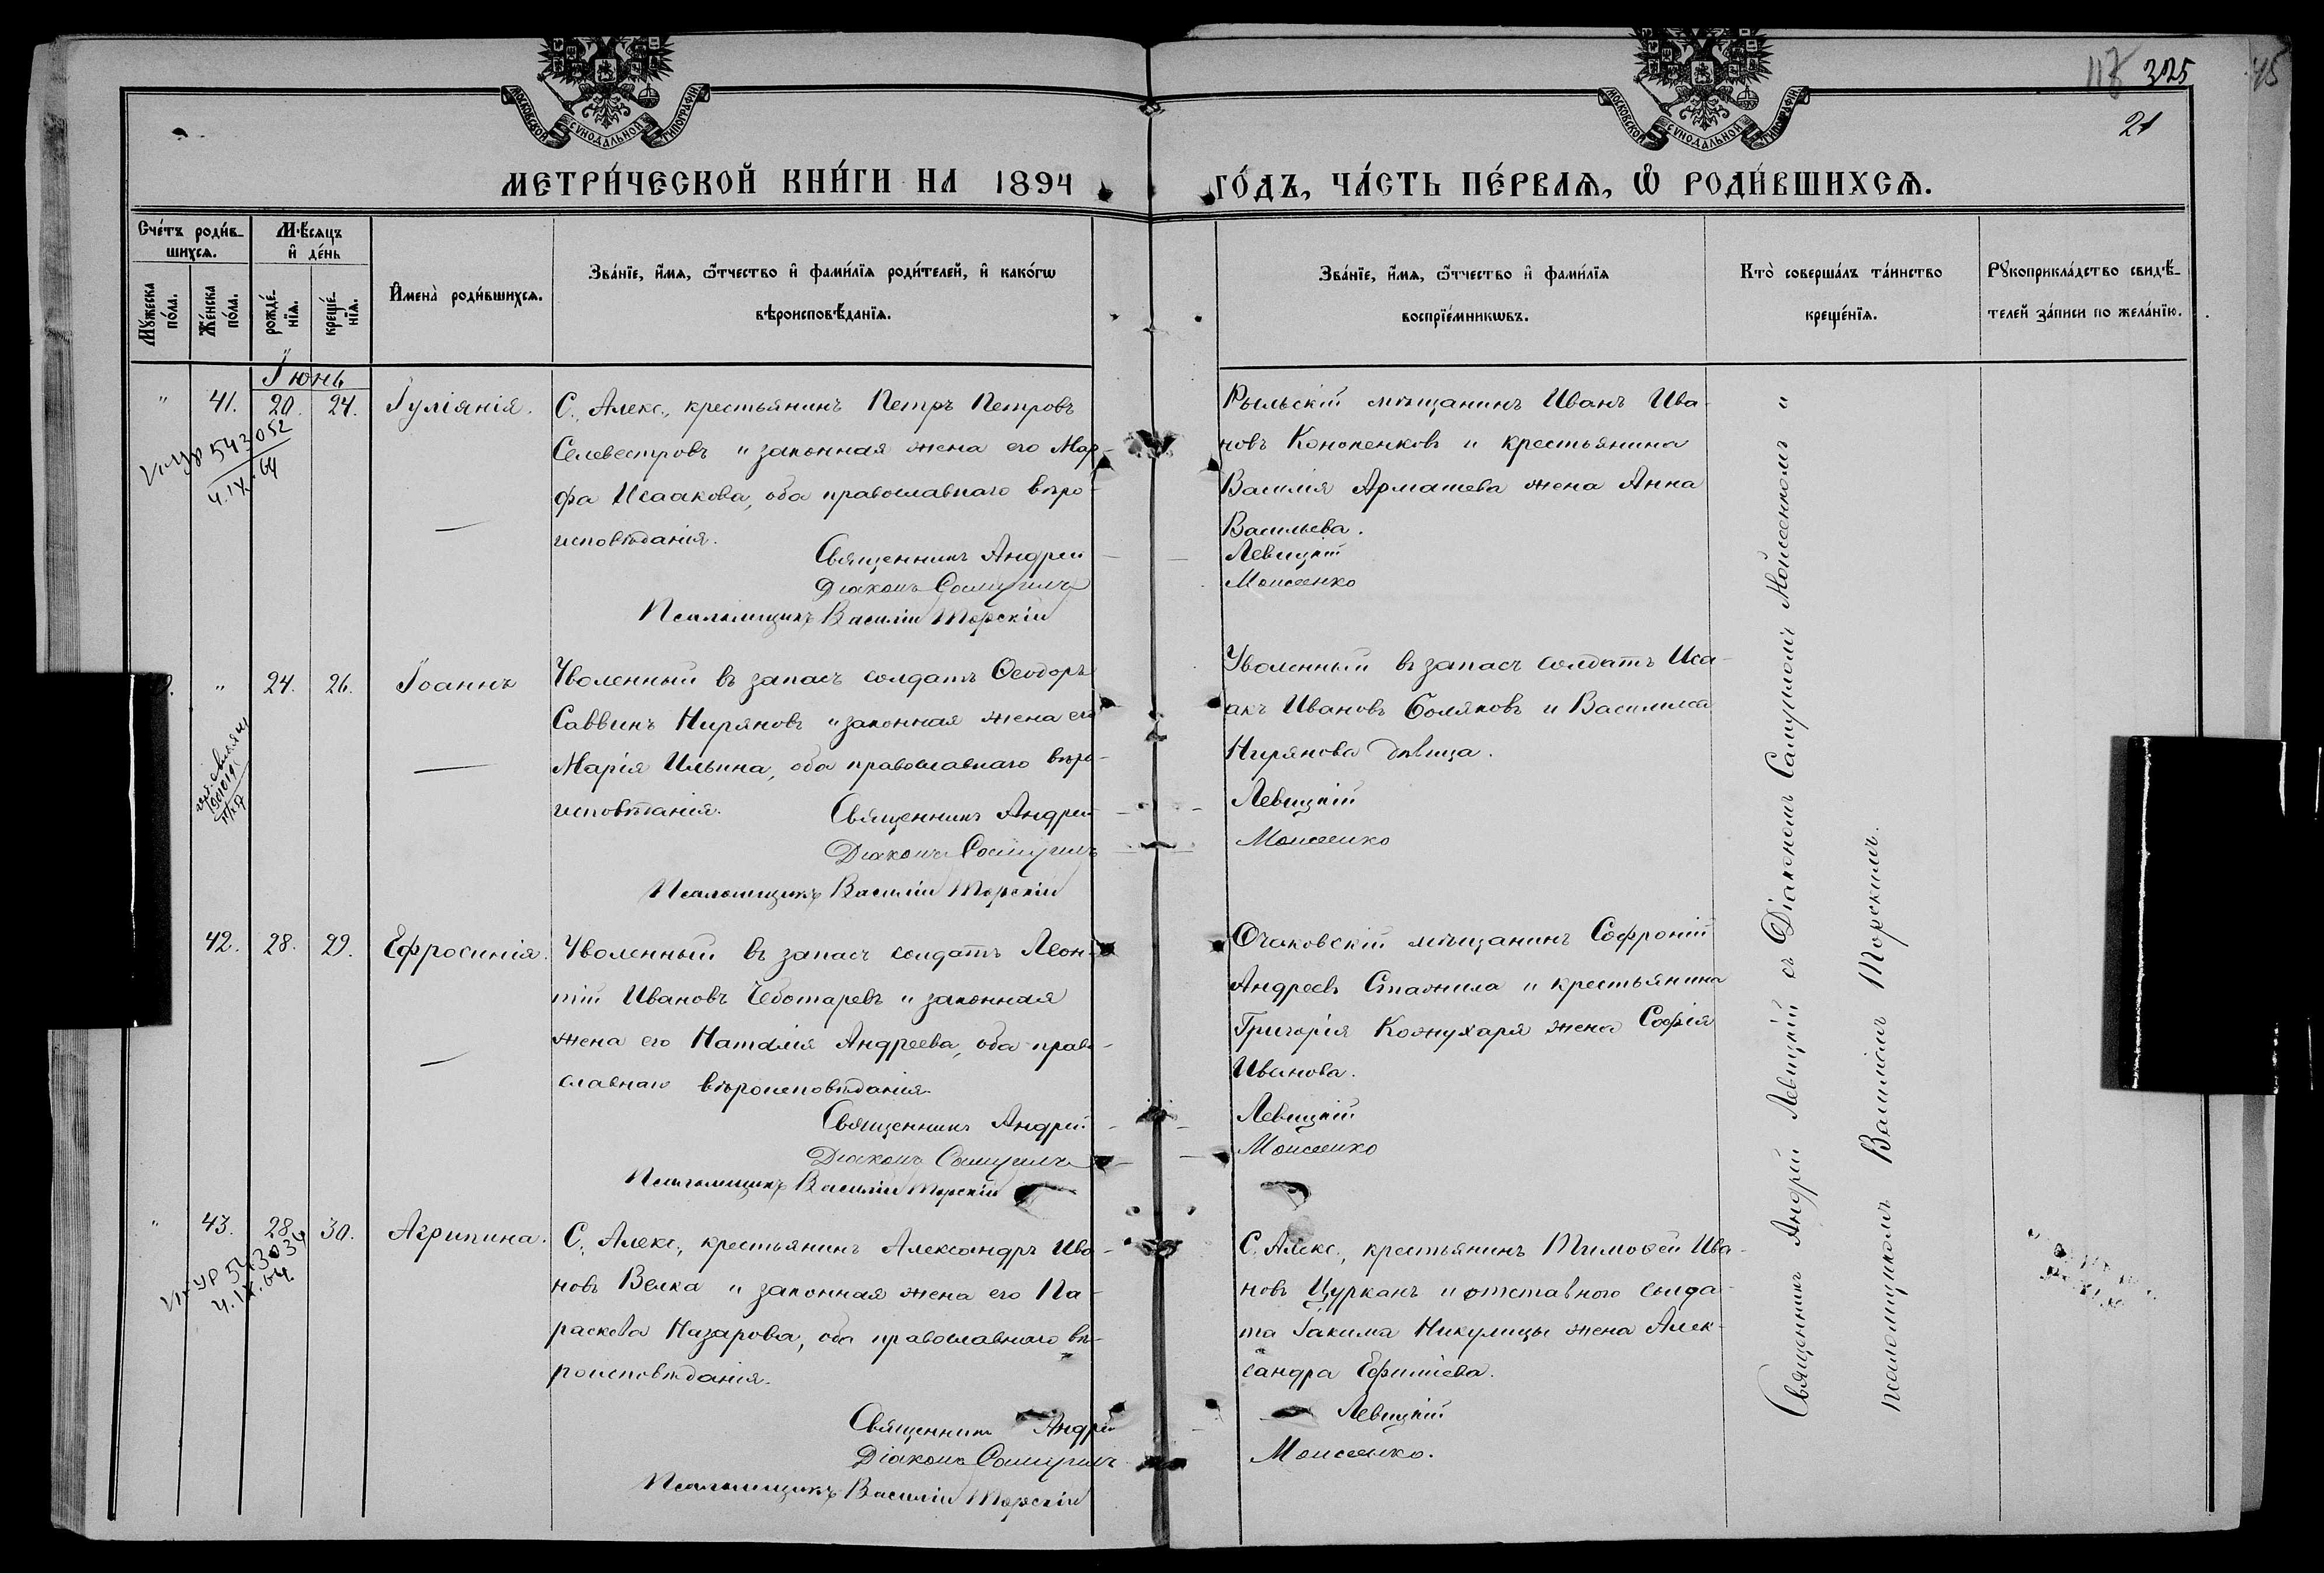 МОСКОВСКОЙ СѴНОДАЛЬНОЙ ТИПОГРАФІИ
МОСКОВСКОЙ СѴНОДАЛЬНОЙ ТИПОГРАФІИ
325
45
21
МЕТРИ́ЧЕСКОЙ КНИ́ГИ НА 1894
ГО́ДЪ, ЧА́СТЬ ПЕ́РВАѦ, Ѡ҆ РОДИ́ВШИХСѦ.
Сче́тъ роди́в-
шихсѧ.
Мꙋ́жеска
по́ла.
Же́нска
по́ла.
Мѣ́сѧцъ
и҆ де́нь
рожде́-
нїѧ.
креще́-
нїѧ.
И҆мена̀ роди́вшихсѧ.
Зва́нїе, и҆́мѧ, ѻ҆́тчество и҆ фами́лїѧ роди́телей, и҆ како́гѡ
вѣроисповѣ́данїѧ.
Зва́нїе, и҆́мѧ, ѻ҆́тчество и҆ фами́лїѧ
воспрїе́мникѡвъ.
Кто̀ соверша́лъ та́инство
креще́нїѧ.
Рꙋкоприкла́дство свидѣ́-
телей за́писи по жела́нїю.
Іюнь
" 41. 20. 24. Іуліанія.
543052
4.IX.64
С. Алекс., крестьянинъ Петръ Петровъ
Селевестровъ и законная жена его Мар-
фа Исаакова, оба православнаго вѣро-
исповѣданія.
Священникъ Андрей
Діаконъ Самуилъ
Псаломщикъ Василій Торскій
Рыльскій мѣщанинъ Иванъ Ива-
новъ Кононенковъ и крестьянина
Василія Армашева жена Анна
Васильева.
Левицкій
Моисеенко
" 24. 26. Іоаннъ
Уволенный въ запасъ солдатъ Ѳеодоръ
Саввинъ Ниряновъ и законная жена его
Марія Ильина, оба православнаго вѣро-
исповѣданія.
Священникъ Андрей
Діаконъ Самуилъ
Псаломщикъ Василій Торскій
Уволенный въ запасъ солдатъ Иса-
акъ Ивановъ Боляковъ и Василиса
Нирянова дѣвица.
Левицкій
Моисеенко
42. 28. 29. Ефросинія.
Уволенный въ запасъ солдатъ Леон-
тій Ивановъ Чеботаревъ и законная
жена его Наталія Андреева, оба право-
славнаго вѣроисповѣданія.
Священникъ Андрей
Діаконъ Самуилъ
Псаломщикъ Василій Торскій
Очаковскій мѣщанинъ Софроній
Андреевъ и крестьянина
Григорія Кожухаря жена Софія
Иванова.
Левицкій
Моисеенко
" 43. 28. 30. Агрипина.
543034
4.IX.64.
С. Алекс., крестьянинъ Александръ Ива-
новъ Велка и законная жена его Па-
раскева Назарова, оба православнаго вѣ-
роисповѣданія.
Священникъ Андрей
Діаконъ Самуилъ
Псаломщикъ Василій Торскій
С. Алекс., крестьянинъ Тимоѳей Ива-
новъ Цурканъ и отставного солда-
та Іакима Никулицы жена Алек-
сандра Ефимева.
Левицкій
Моисеенко.
Священникъ Андрей Левицкій съ Діакономъ Самуиломъ Моисеенкомъ и
псаломщикомъ Василіемъ Торскимъ.